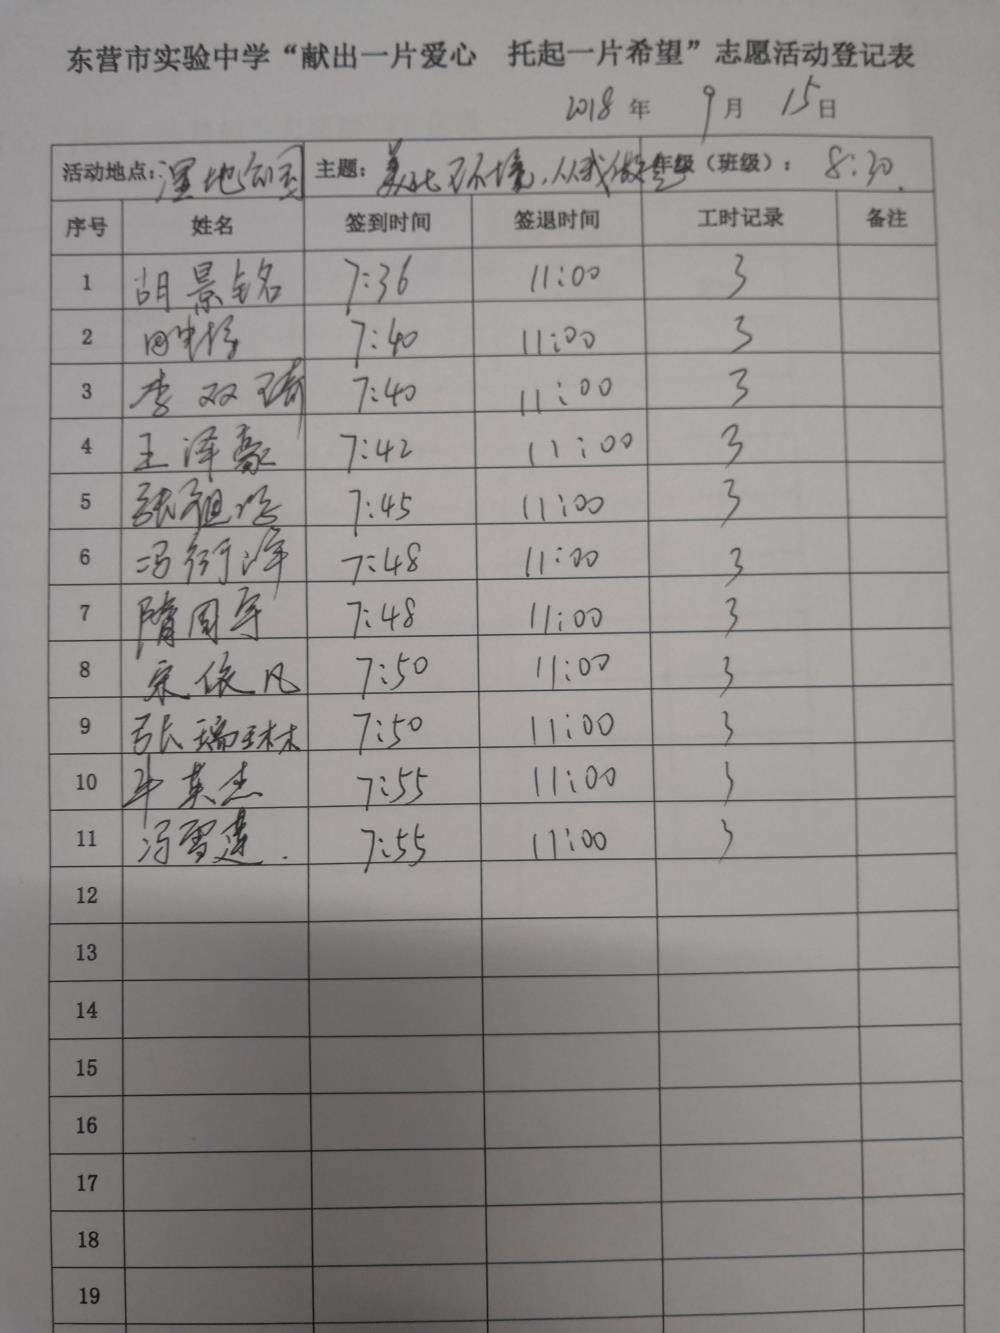 东营市实验中学“献出一片爱心 托起一片希望”志愿活动登记表
2018年 9月 15日
活动地点：湿地公园 主题：美化环境，从我做起 年级（班级）：8:30.
序号 姓名 签到时间 签退时间 工时记录 备注
1 胡景铭 7:36 11:00 3
2 7:40 11:00 3
3 李双琦 7:40 11:00 3
4 王泽豪 7:42 11:00 3
5 张祖 7:45 11:00 3
6 冯衍洋 7:48 11:00 3
7 隋国军 7:48 11:00 3
8 宋依凡 7:50 11:00 3
9 张瑞琳 7:50 11:00 3
10 牛英杰 7:55 11:00 3
11 冯雪莲. 7:55 11:00 3
12
13
14
15
16
17
18
19